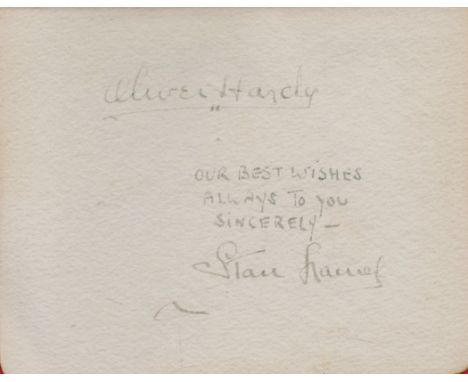 Oliver Hardy
OUR BEST WISHES
ALWAYS TO YOU
SINCERELY —
Stan Laurel